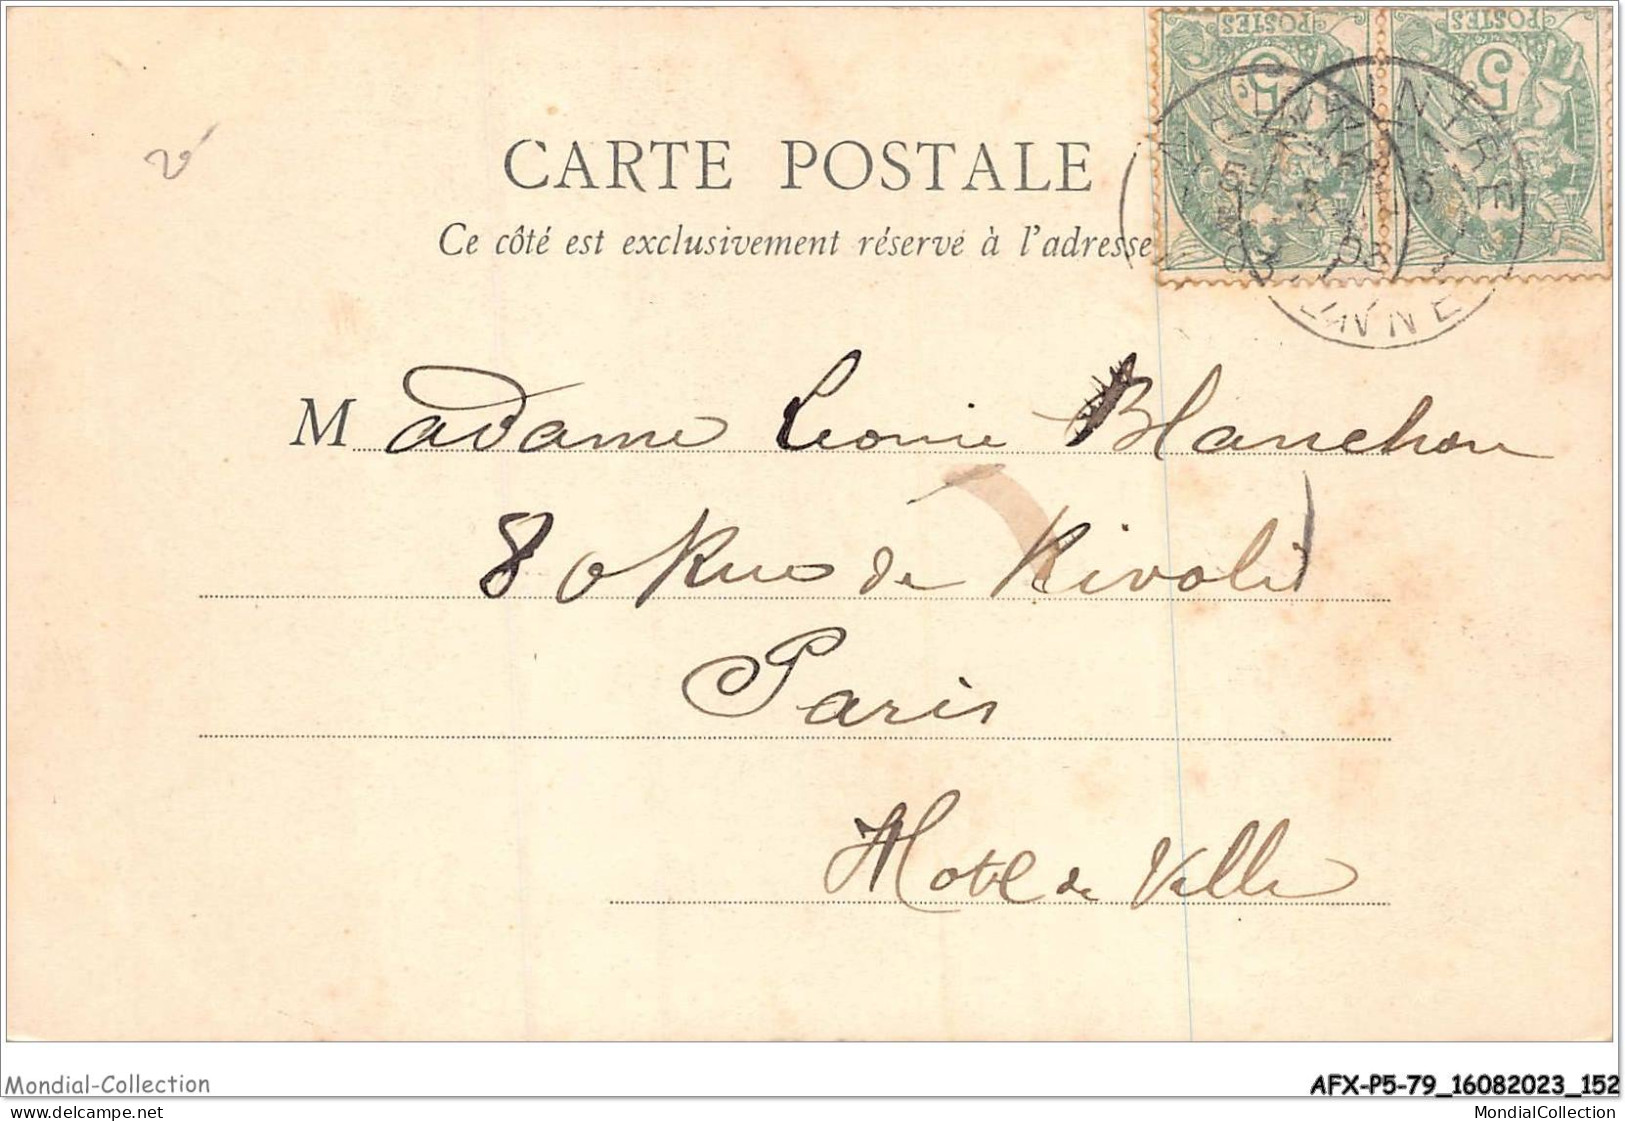 POSTES POSTES
5 5
CARTE POSTALE
Ce côté est exclusivement réservé à l'adresse
Madame Leonie Blanchon
80 Rue de Rivoli
Paris
Hotel de Ville
Mondial-Collection
AFX-P5-79_16082023_152
delcampe.net
MondialCollection